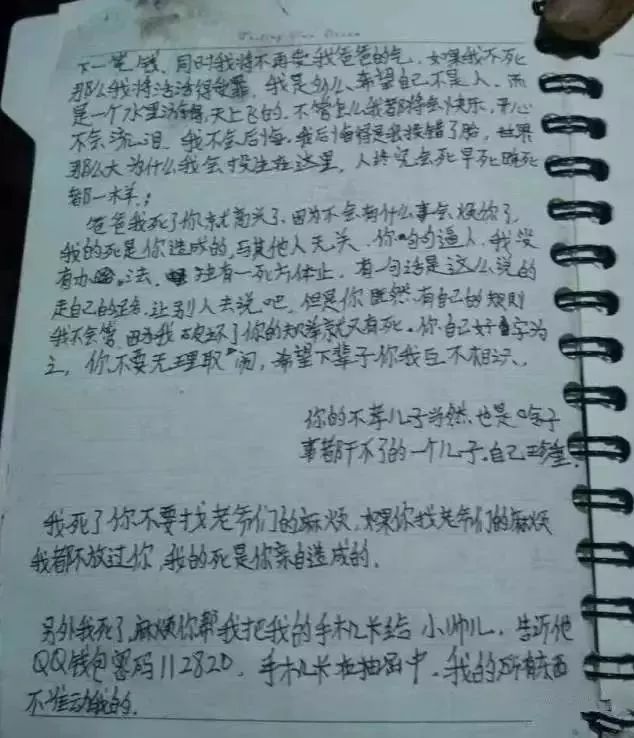 下一笔钱、同时我将不再受我爸爸的气。如果我不死
那么我将活活得受罪，我是多么希望自己不是人。而
是一个水里活得，天上飞的。不管怎么我都将会快乐，开心
不会流泪。我不会后悔，我后悔得是我投错了胎，世界
那么大为什么我会投生在这里，人终究会死早死晚死
都一样；
爸爸我死了你就高兴了，因为不会有什么事会烦你了，
我的死是你造成的，与其他人无关、你句句逼人，我没
有办法，独有一死方休止，有一句话是这么说的
走自己的路，让别人去说吧，但是你既然有自己的规则
我不会管，因为我破坏了你的规矩就只有死。你自己好自为
之，你不要无理取闹，希望下辈子你我互不相识、
你的不孝儿子当然也是啥子
事都干不了的一个儿子。自己
我死了你不要找老爷们的麻烦，如果你找老爷们的麻烦
我都不放过你，我的死是你亲自造成的、
另外我死了，麻烦你帮我把我的手机卡给小帅儿，告诉他
QQ钱包密码112820、手机卡在抽屉中、我的所有东西
不准动我的、